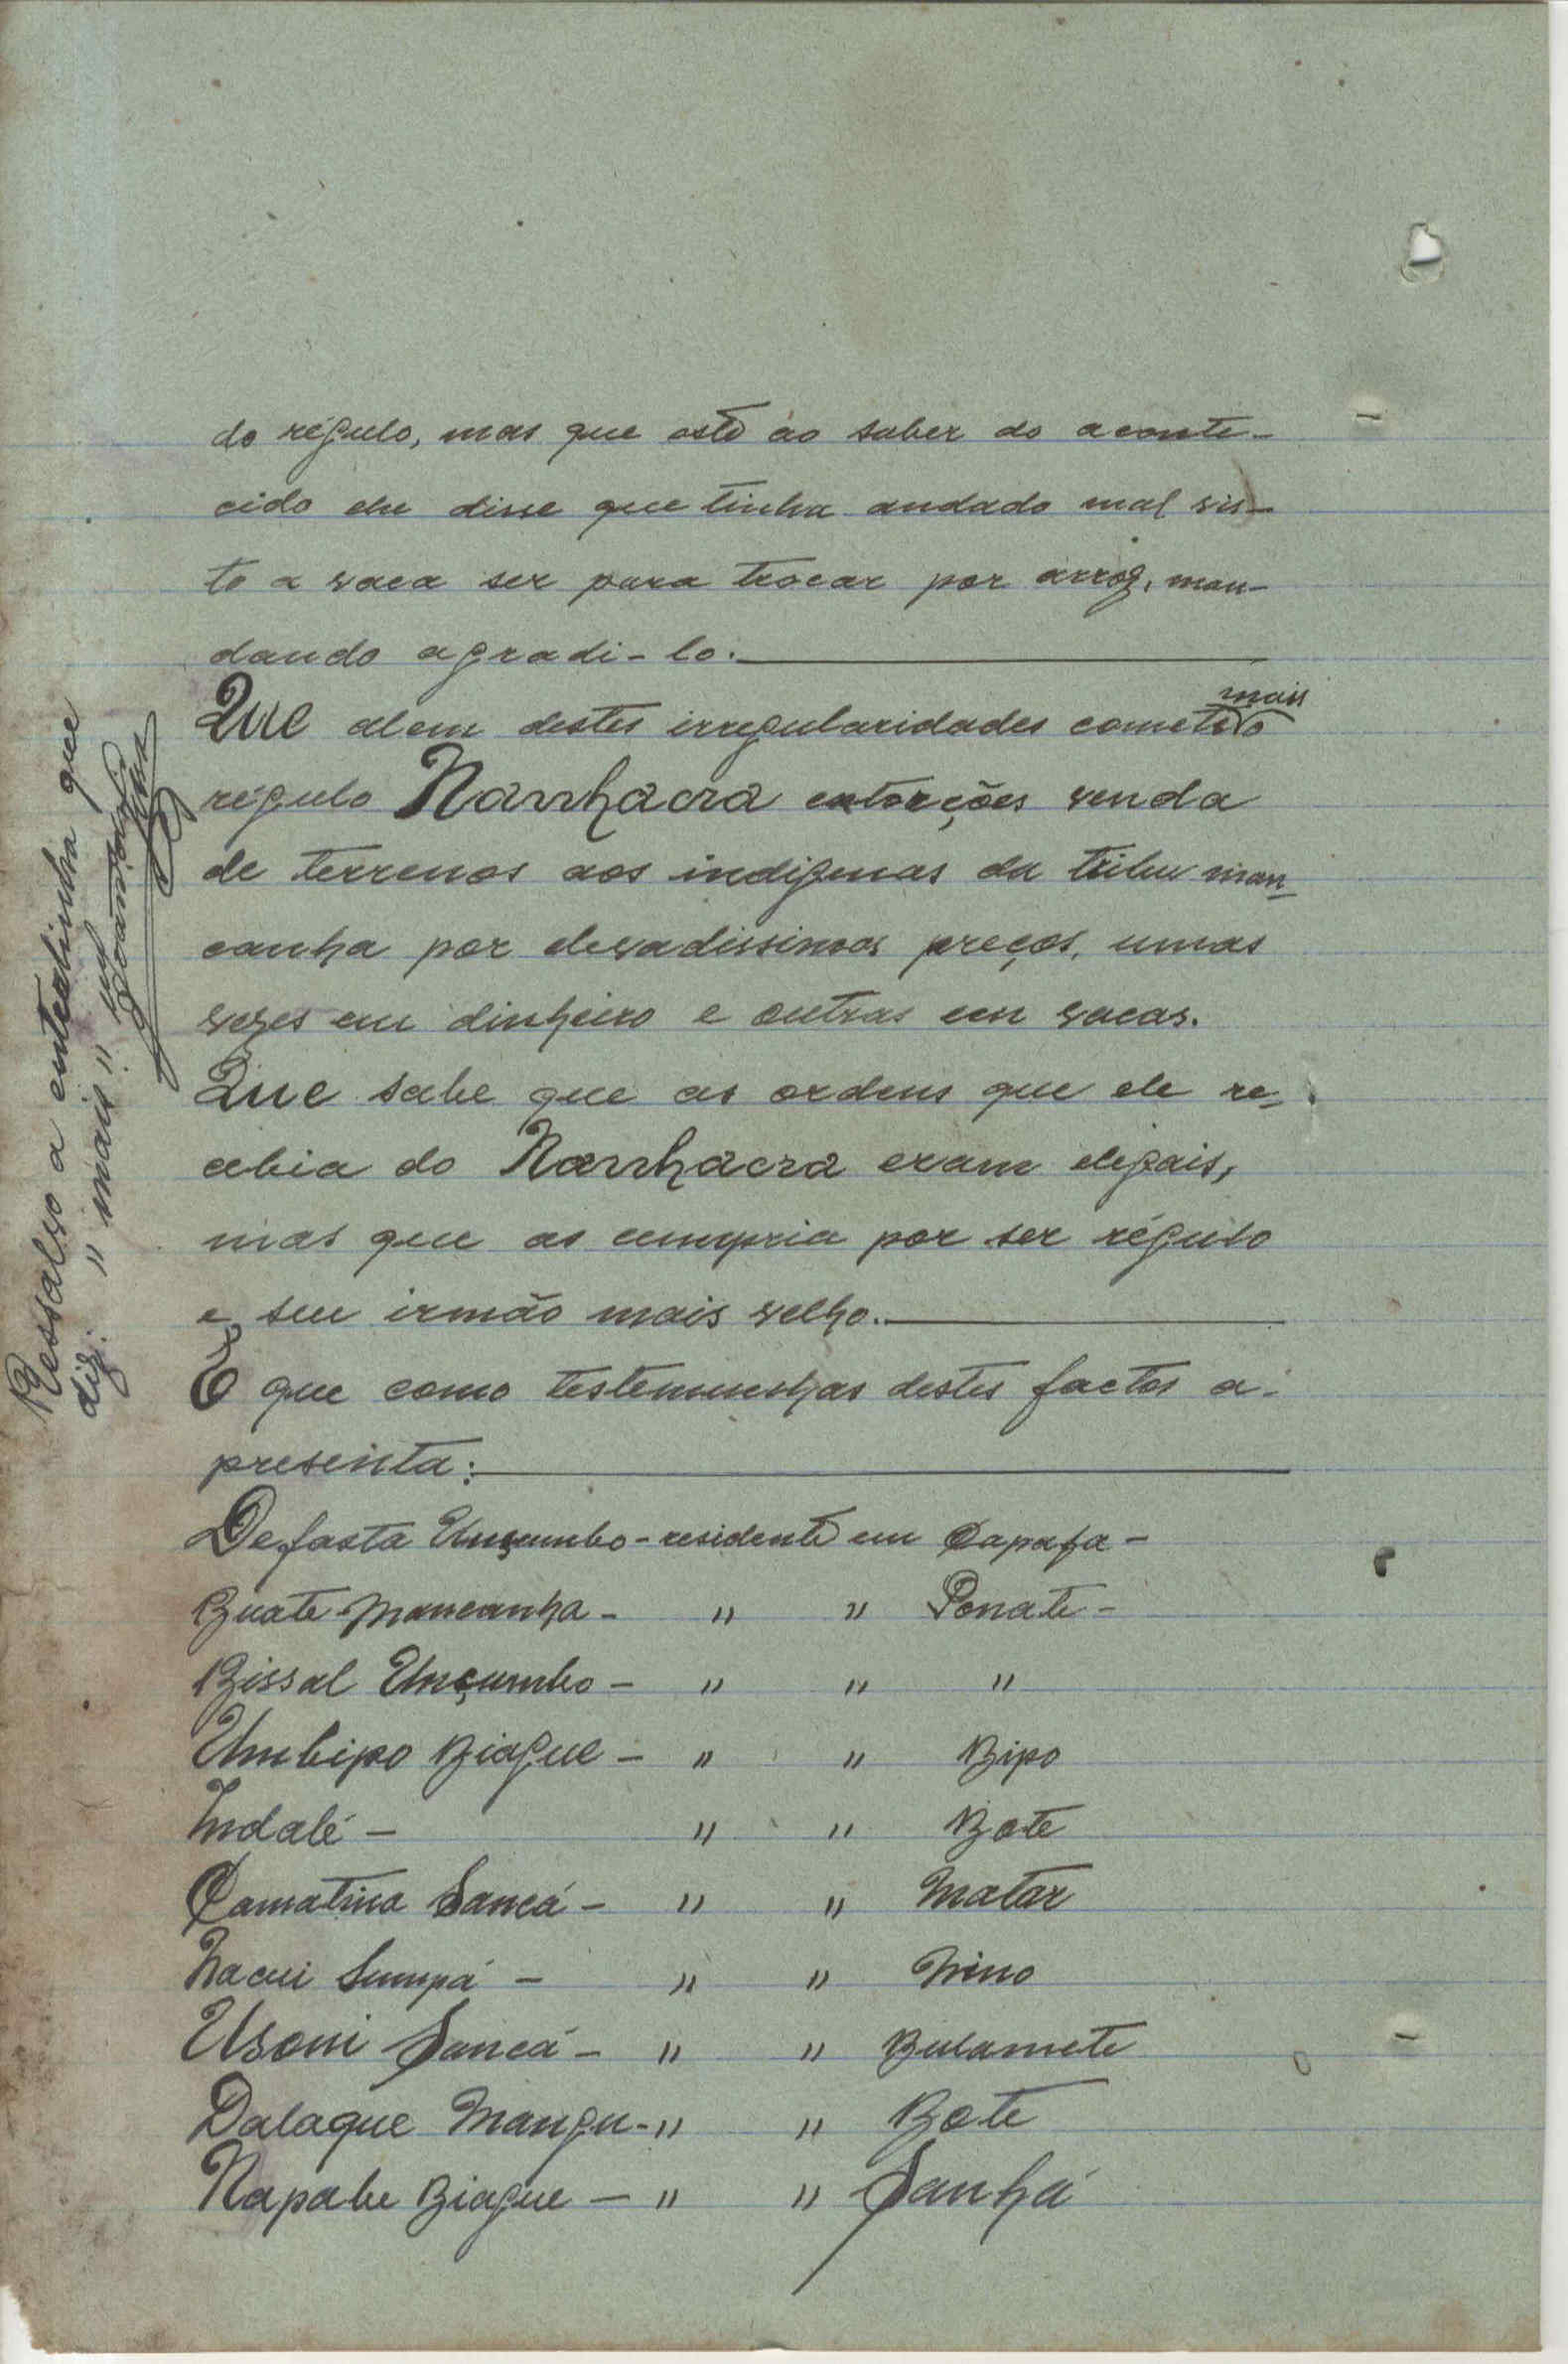 do régulo, mas que este ao saber do aconte-
cido lhe disse que tinha andado mal vis-
to a vaca ser para trocar por arroz, man-
dando agradi-lo.
Que alem destes irregularidades comete mais o
régulo Nanhacra extorções venda
de terrenos aos indigenas da tribu man-
canha por elevadissimos preços, umas
vezes em dinheiro e outras em vacas.
Que sabe que as ordens que ele re-
cebia do Nanhacra eram ilegais,
mas que as cumpria por ser régulo
e seu irmão mais velho.
E que como testemunhas destes factos a-
presenta:
Defasta Unçumbo - residente em Capafa -
Buate Mancanha - " " Ponate -
Bissal Unçumbo - " " "
Umbipo Biague - " " Bipo
Indalé - " " Bote
Camatina Sancá - " " Matar
Nacui Sumpá - " " Nino
Usoni Sancá - " " Bulamete
Dalaque Mangu - " " Bote
Napabe Biague - " " Sanhá
Ressalvo a entrelinha que
diz: "mais"